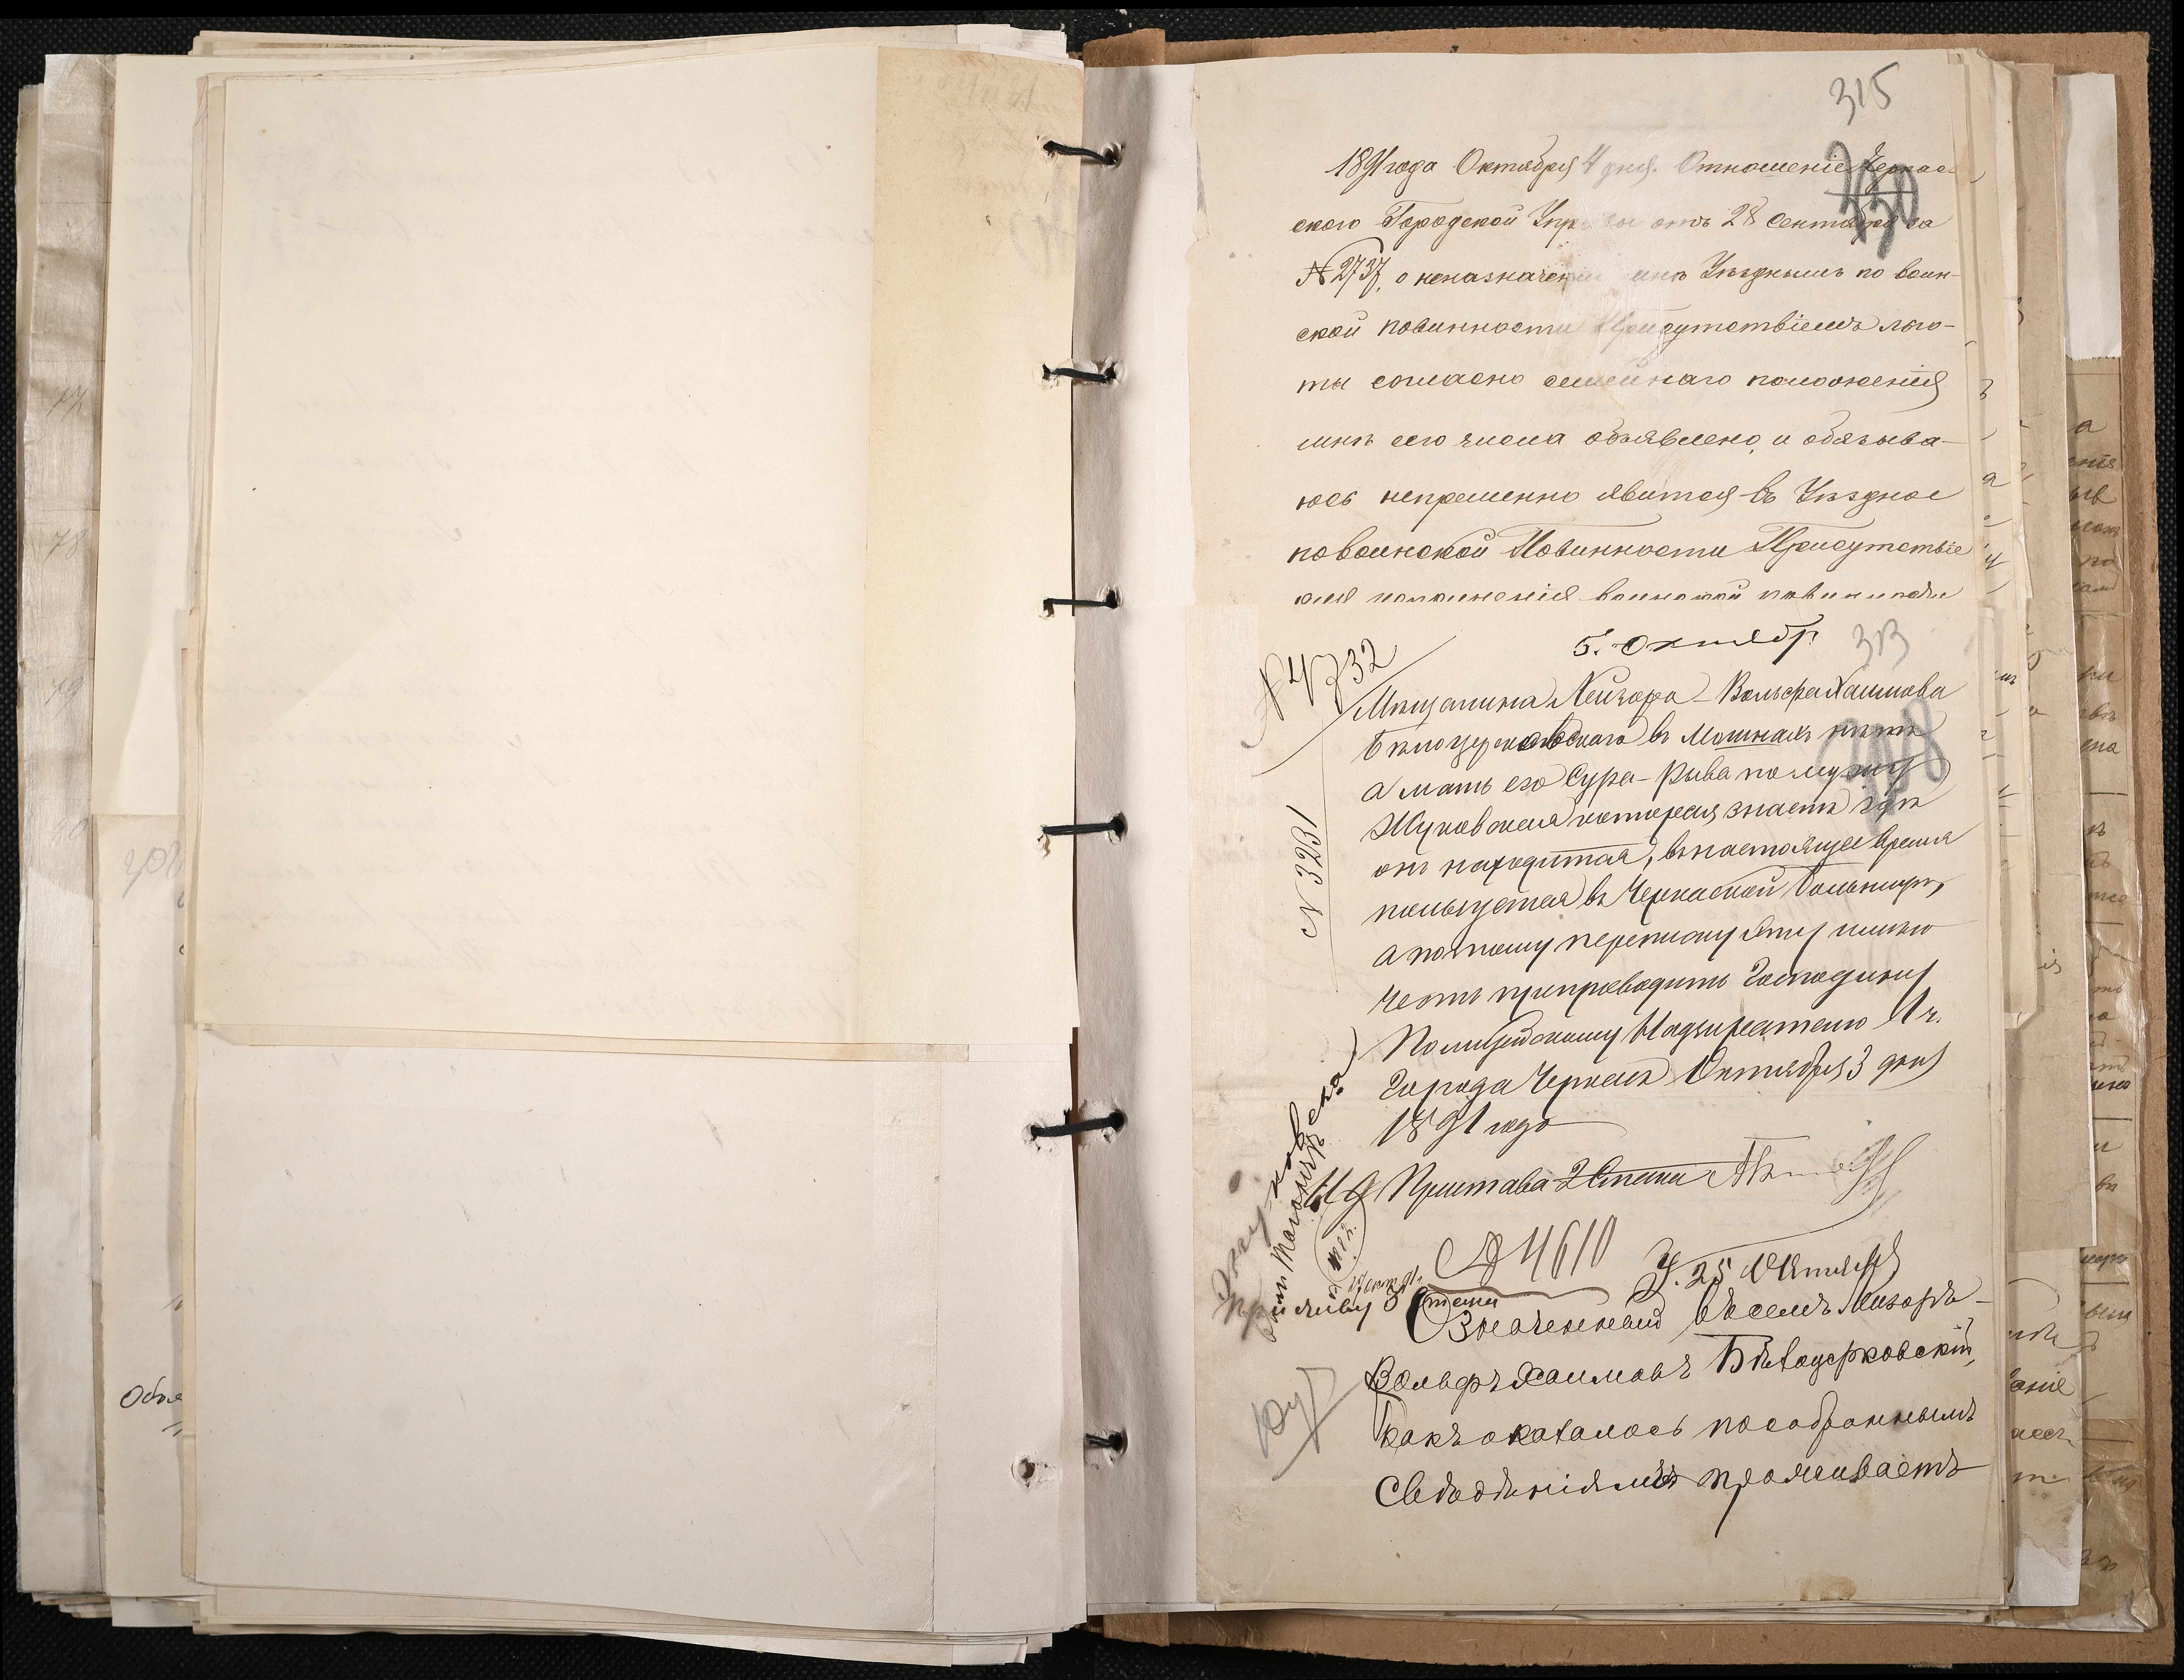 315
330
1891 года Октября 4 дня. Отношеніе Черкас-
ского Городской Упра вы отъ 28 Сентября за
№ 2737, о неназначеніи мнѣ Уѣзднымъ по воин-
ской повинности Присутствіемъ льго-
ты согласно семейнаго положенія
мнѣ сего числа объявлено, и обязыва-
юсь непременно явится въ Уѣздное
по воинской Повинности Присутствіе
для исполненія воинской повинности
313
5. Октябр.
№ 4732
Мѣщанина Лейзора-Вольфа Хаимова
Бѣлоцерковскаго въ Мошнахъ нѣтъ
а мать его Сура-Рыва по мужу
Жуковская которая знаетъ гдѣ
онъ находится, въ настоящее время
пользуется въ Черкаской Больницѣ,
а потому переписку эту имѣю
честь препроводить Господину
Полицейскому Надзирателю 1 ч.
Города Черкасъ Октября 3 дня
1891 года
№ 3231
И Д Пристава 2 Стана
№ 4610
У. 25 Октября
Стана
Означенный въ семъ Лизоръ-
Вольфъ Хаимовъ Бѣлоцерковскій,
какъ оказалось по собраннымъ
Сведѣніямъ проживаетъ
Объя